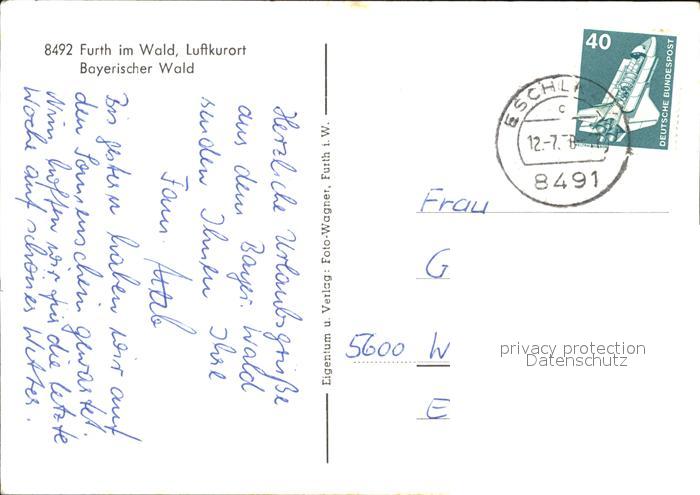 8492 Furth im Wald, Luftkurort
Bayerischer Wald
Herzliche Urlaubsgrüße
aus dem Bayr. Wald
senden Ihnen Ihre
Fam.
Bis gestern haben wir auf
den Sonnenschein gewartet.
Nun hoffen wir für die letzte
Woche auf schönes Wetter.
Eigentum u. Verlag: Foto-Wagner, Furth i. W.
40
DEUTSCHE BUNDESPOST
c
12.-7.
8491
Frau
G
5600 W
E
privacy protection
Datenschutz